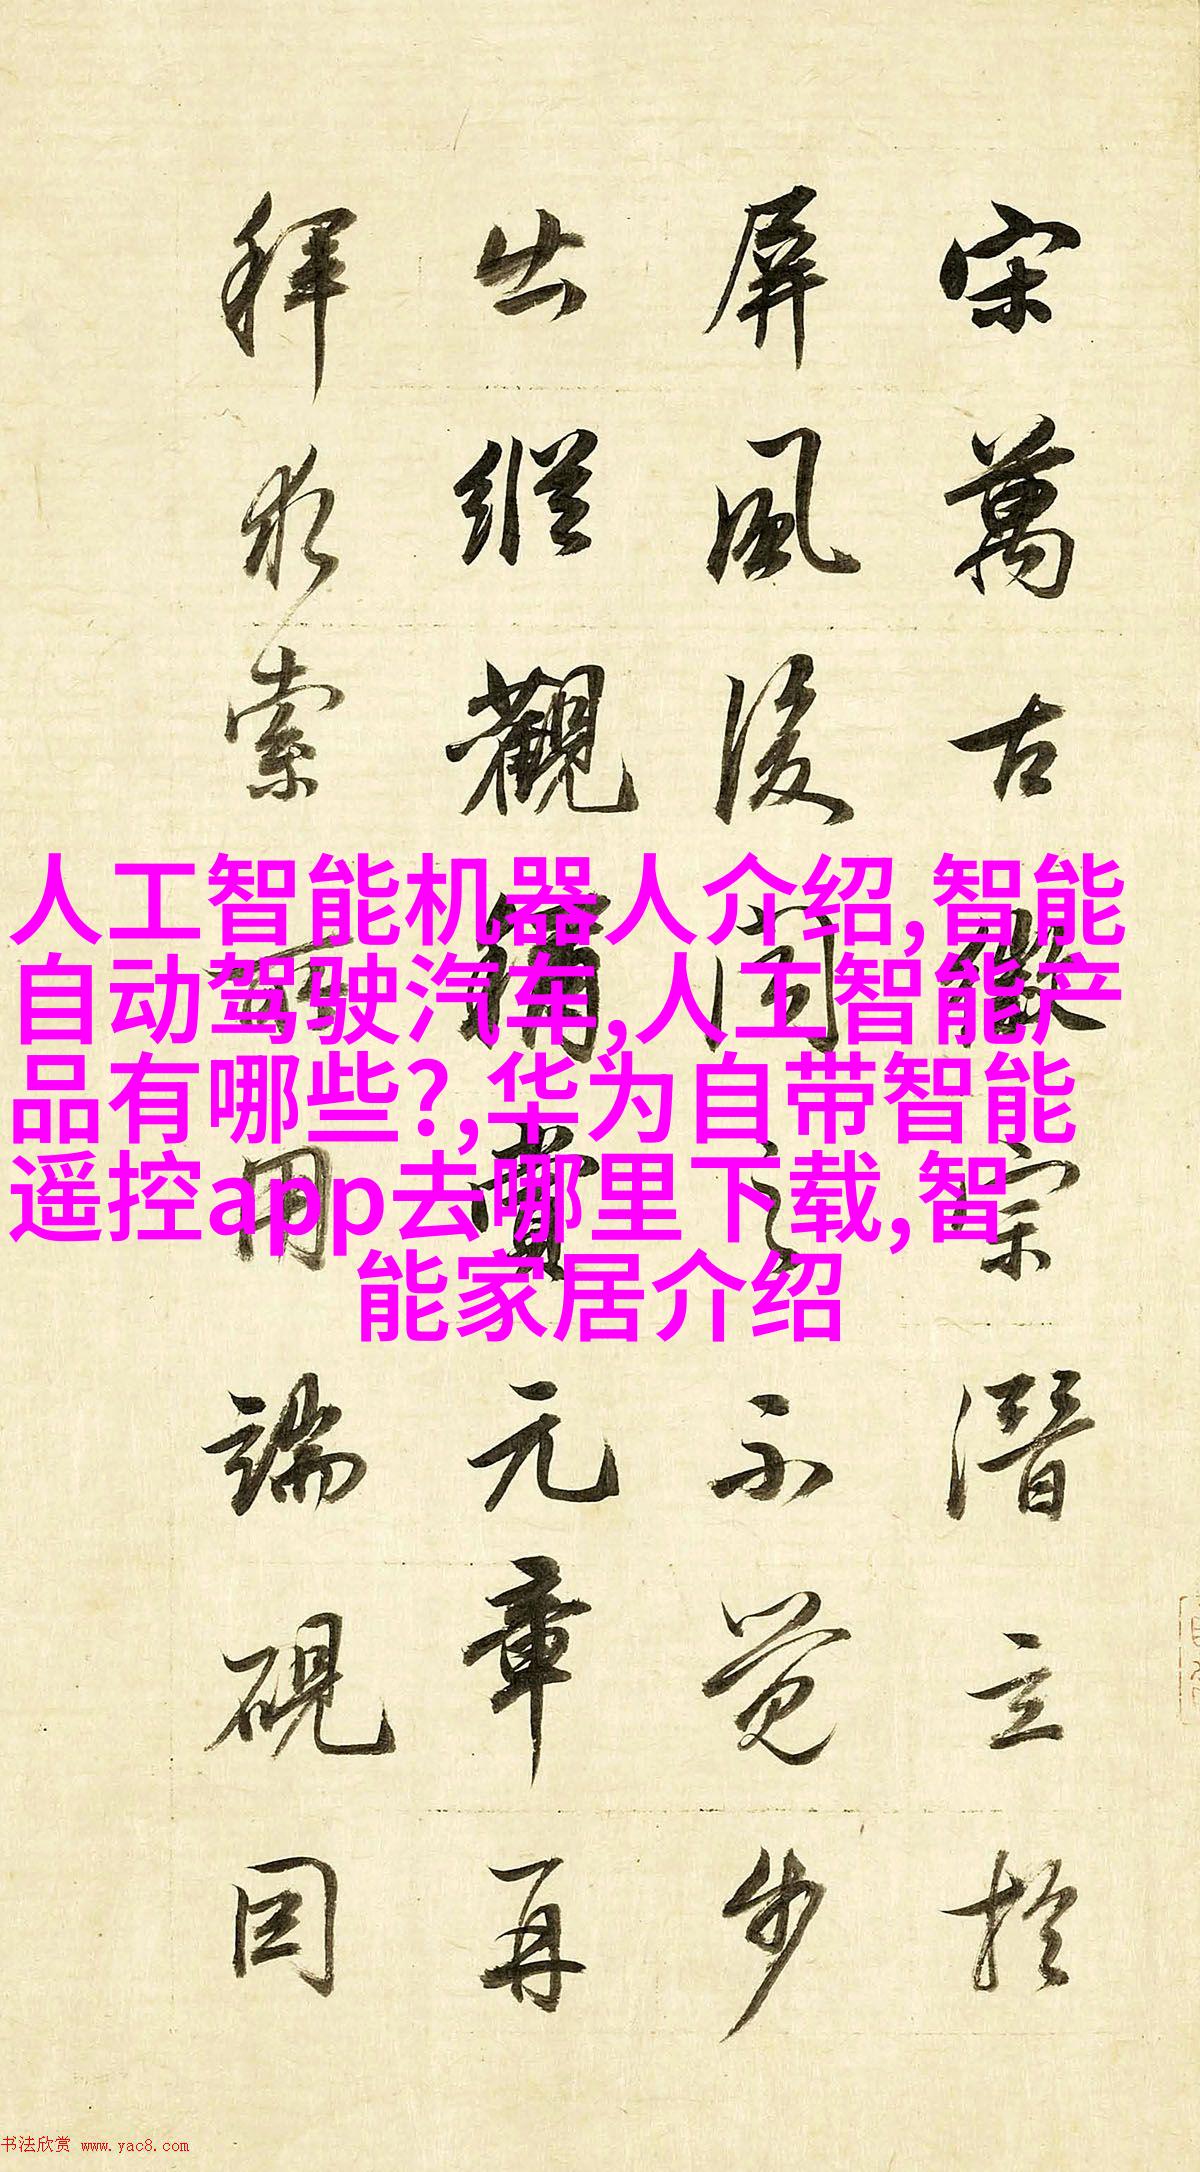 宋萬古徽宗潛立於
屏風後聞之不覺步
出縱觀稱賞元章再
拜求索所用端硯因
人工智能机器人介绍,智能
自动驾驶汽车,人工智能产
品有哪些?,华为自带智能
遥控app去哪里下载,智
能家居介绍
书法欣赏 www.yac8.com